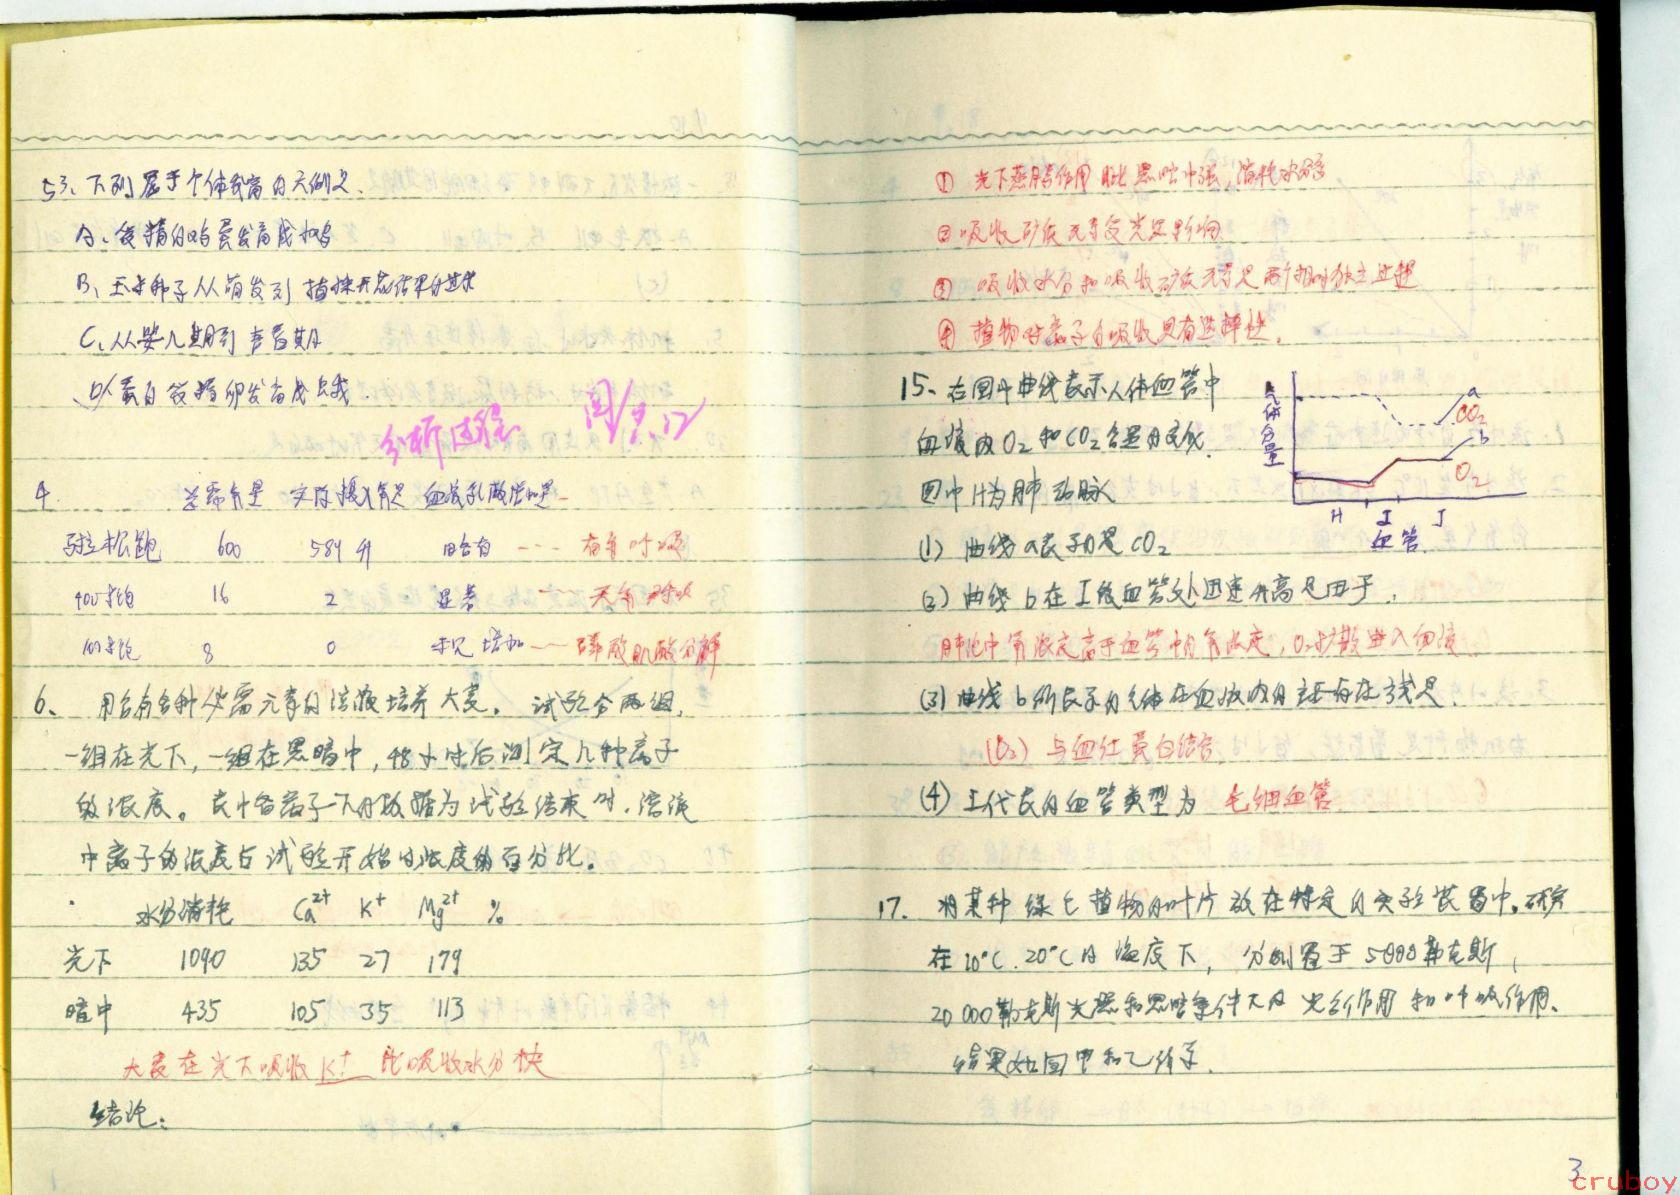 53、下列属于个体发育的实例是
A、受精的鸡蛋发育成小鸡
B、玉米种子从萌发到植株开花结果的过程
C、从婴儿期到青春期
D、蚕的受精卵发育成
分析过程
4. 总需氧量 实际摄入氧量 血液乳酸增加量
马拉松跑 600 589 升 略有 --- 有氧呼吸
400米跑 16 2 显著 --- 无氧呼吸
100米跑 8 0 未见增加 --- 磷酸肌酸分解
6、用含有各种必需元素的溶液培养大麦。试验分两组,
一组在光下,一组在黑暗中,48小时后测定几种离子
的浓度。表中各离子下的数据为试验结束时,溶液
中离子的浓度占试验开始时浓度的百分比。
水分消耗 Ca²⁺ K⁺ Mg²⁺ %
光下 1090 135 27 179
暗中 435 105 35 113
大麦在光下吸收K⁺比吸收水分快
结论:
① 光下蒸腾作用比黑暗中强,消耗水分多
② 吸收矿质元素受光照影响
③ 吸收水分和吸收矿质元素是两个相对独立过程
④ 植物对离子的吸收具有选择性。
15、右图中曲线表示人体血管中
血液内O₂和CO₂含量的变化.
图中H为肺动脉
气体含量
a
CO₂
b
O₂
H I J
血管
(1) 曲线a表示的是CO₂
(2) 曲线b在I段血管处迅速升高是由于.
肺泡中氧浓度高于血管中的氧浓度,O₂扩散进入血液.
(3) 曲线b所表示的气体在血液内的主要存在形式是.
(O₂) 与血红蛋白结合.
(4) I代表的血管类型为 毛细血管
17. 将某种绿色植物的叶片放在特定的实验装置中。研究
在10°C.20°C的温度下,分别置于5000勒克斯,
20000勒克斯光照和黑暗条件下的光合作用和呼吸作用.
结果如图甲和乙所示.
3
cruboy